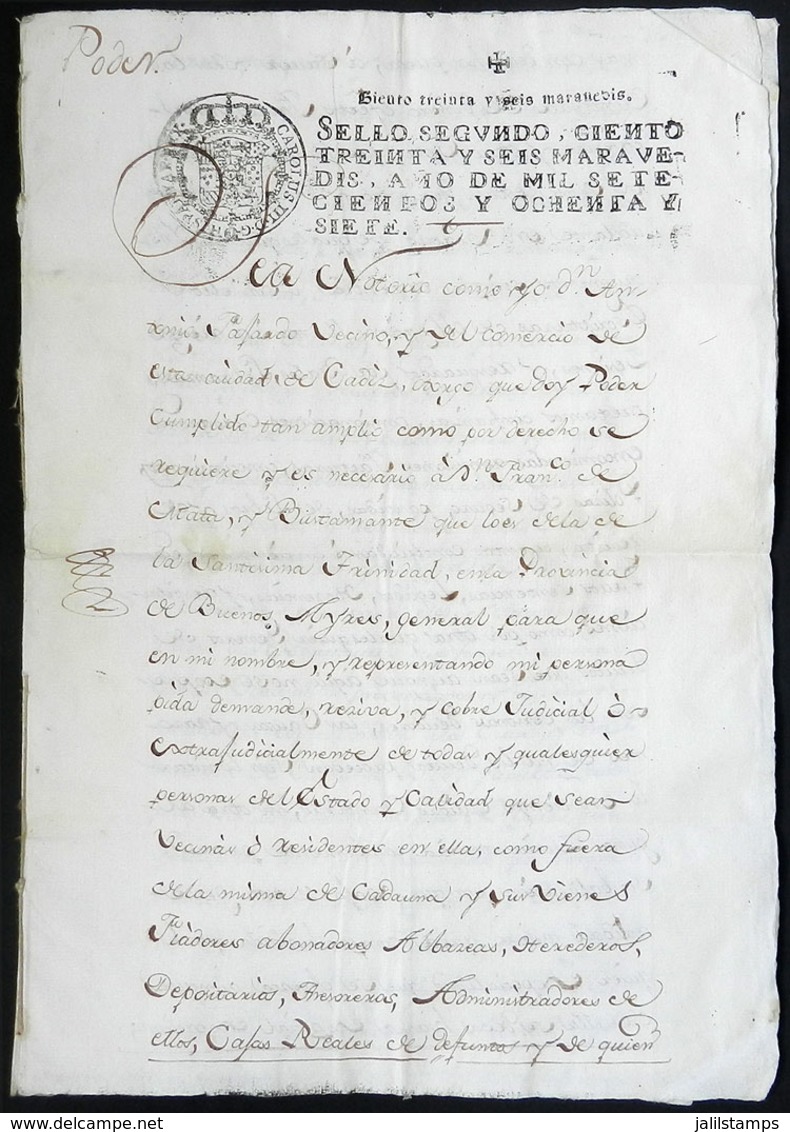 Poder.
Ciento treinta y seis marauedis.
SELLO SEGVNDO, CIENTO
TREINTA Y SEIS MARAVE-
DIS, AÑO DE MIL SETE-
CIENTOS Y OCHENTA Y
SIETE.
CAROLUS III D G HISPANIAR REX
Sea Notorio como yo dn. An-
tonio Pasardo Vecino, y del Comercio de
esta ciudad de Cadiz, otorgo que doy Poder
Cumplido tan amplio como por derecho se
requiere y es necesario à Dn. Franco. de
Mata, y Bustamante que lo es de la de
la Santisima Trinidad, en la Provincia
de Buenos Ayres, general para que
en mi nombre, y representando mi persona
pida demande, reciva, y cobre Judicial ò
extrajudicialmente de todas y qualesquier
personas del Estado y Calidad que sean
Vecinas ò residentes en ella, como fuera
de la misma de Cadauna y sus Vienes
Fiadores abonadores Albaceas, Herederos,
Depositarios, Thesoreros, Administradores de
ellos, Casas Reales de defuntos y de quien
jalilstamps